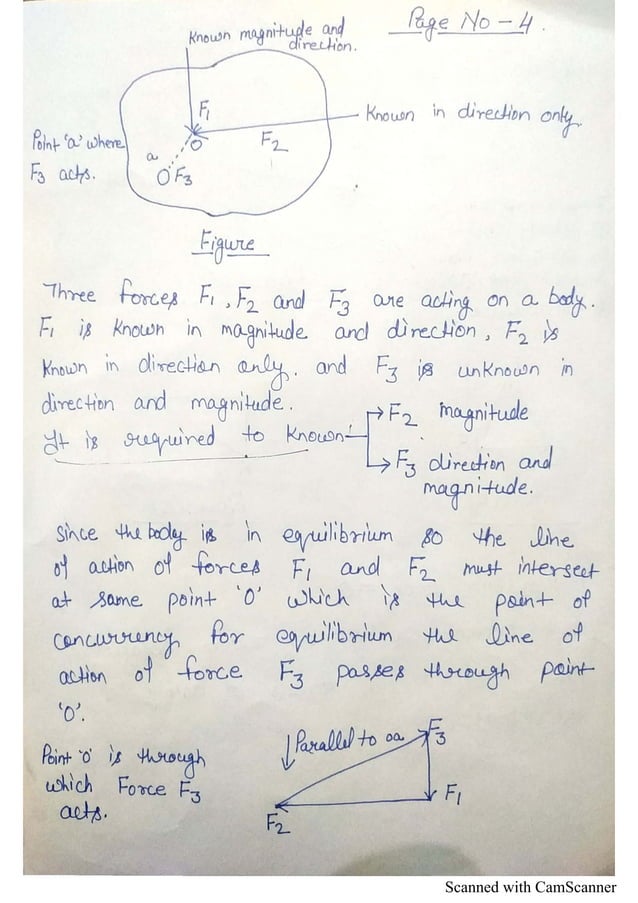 Page No - 4.
Known magnitude and
direction.
F1
Known in direction only.
Point 'a' where
F3 acts.
O
F2
a
O F3
Figure
Three forces F1, F2 and F3 are acting on a body.
F1 is known in magnitude and direction, F2 is
known in direction only. and F3 is unknown in
direction and magnitude.
It is required to known
F2 magnitude
F3 direction and
magnitude.
Since the body is in equilibrium so the line
of action of forces F1 and F2 must intersect
at same point 'O' which is the point of
concurrency for equilibrium the line of
action of force F3 passes through point
'O'.
Point 'o' is through
which Force F3
acts.
Parallel to oa
F3
F1
F2
Scanned with CamScanner